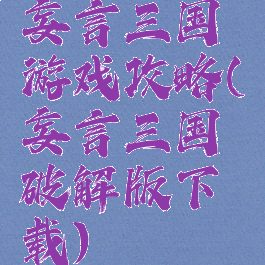 妄言三国
游戏攻略(
妄言三国
破解版下
载)